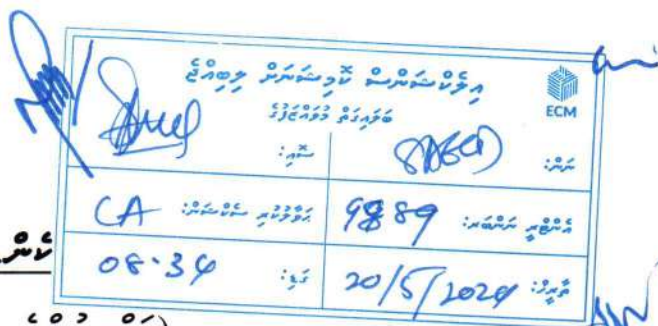 އިލެކްޝަންސް ކޮމިޝަނަށް ލިބިއްޖެ
ބަލައިގަތް މުވައްޒަފުގެ
ECM
ނަން:
ސޮއި:
އެންޓްރީ ނަންބަރ: 9889
ޙަވާލުކުރި ސެކްޝަން: CA
ތާރީޚު: 20/5/2024
ގަޑި: 08:34